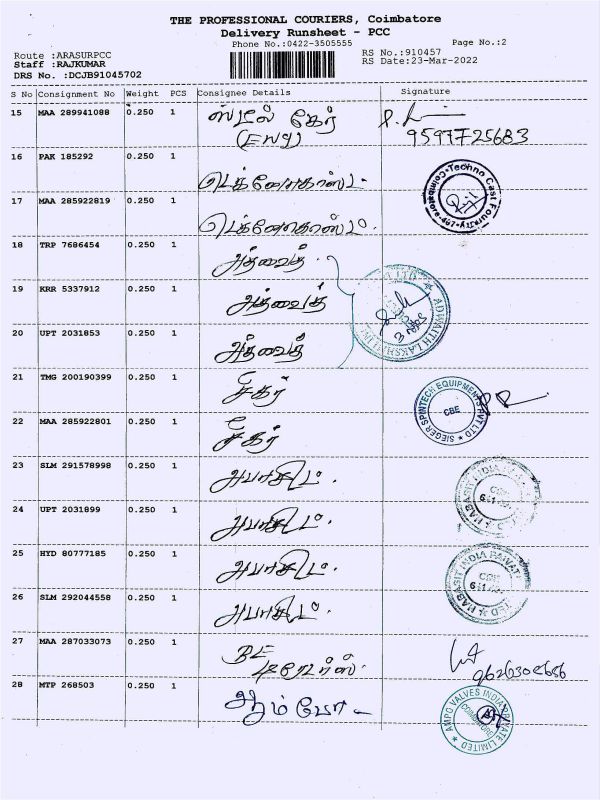 THE PROFESSIONAL COURIERS, Coimbatore
Delivery Runsheet - PCC
Phone No.:0422-3505555
Page No.:2
Route :ARASURPCC
RS No.:910457
Staff :RAJKUMAR
RS Date:23-Mar-2022
DRS No. :DCJB91045702
S No Consignment No Weight PCS Consignee Details Signature
15 MAA 289941088 0.250 1 ஸ்டீல் கேர்
9597725683
16 PAK 185292 0.250 1 டெக்னோகாஸ்ட்
Techno Cast Foundry
Coimbatore
17 MAA 285922819 0.250 1 டெக்னோகாஸ்ட்
18 TRP 7686454 0.250 1 அத்வைத்
19 KRR 5337912 0.250 1 அத்வைத்
ADWAITH LAKSHMI
LTD
20 UPT 2031853 0.250 1 அத்வைத்
21 TMG 200190399 0.250 1 சீகர்
SIEGER SPINTECH EQUIPMENTS PVT LTD
CBE
22 MAA 285922801 0.250 1 சீகர்
23 SLM 291578998 0.250 1
HABASIT INDIA
24 UPT 2031899 0.250 1
25 HYD 80777185 0.250 1
HABASIT INDIA PRIVATE LIMITED
26 SLM 292044558 0.250 1
27 MAA 287033073 0.250 1
28 MTP 268503 0.250 1 ஆம்போ
AMPO VALVES INDIA PRIVATE LIMITED
COIMBATORE